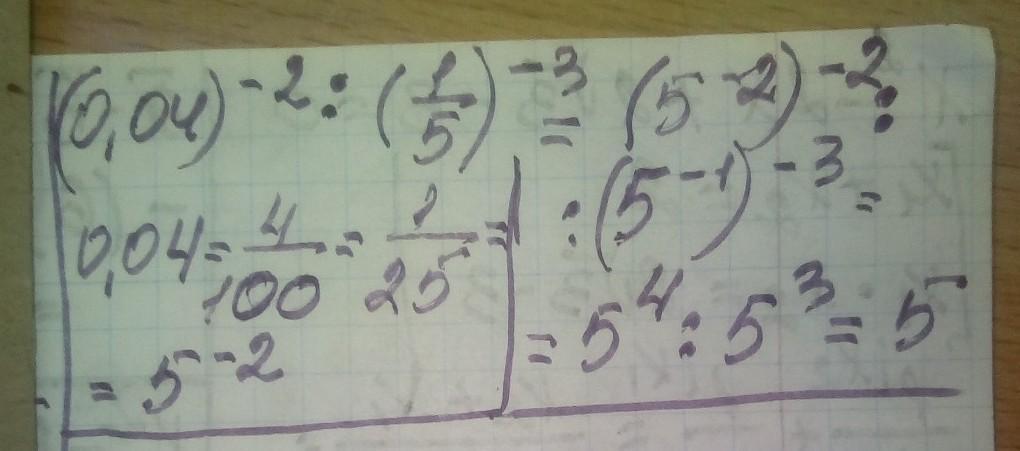 (0,04)^-2 : (1/5)^-3 = (5^-2)^-2 :
: (5^-1)^-3 =
0,04 = 4/100 = 1/25 =
= 5^-2
= 5^4 : 5^3 = 5